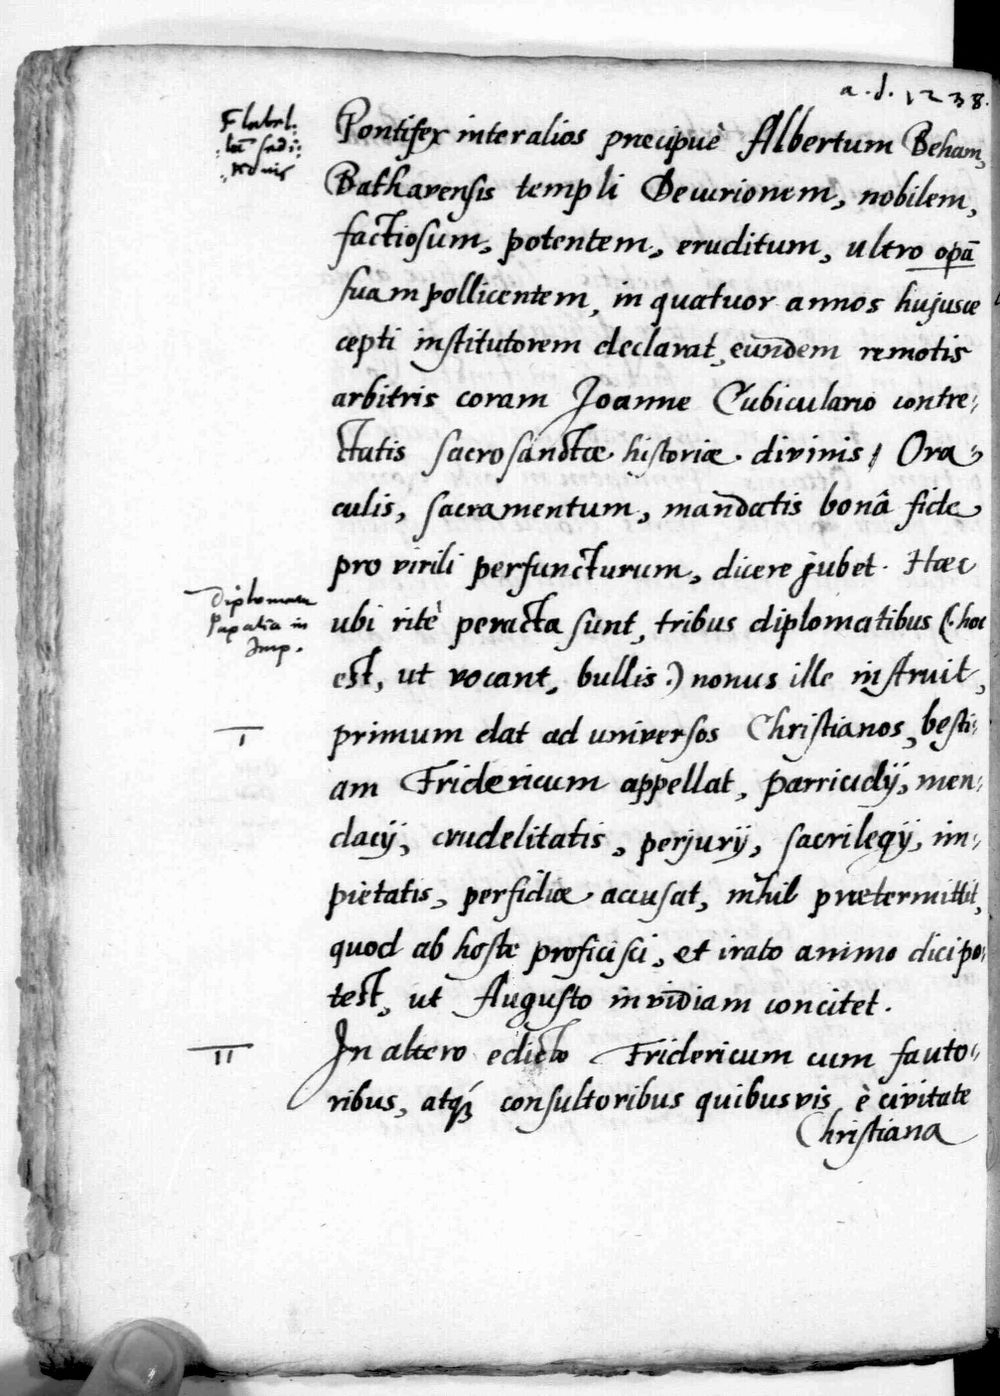 a. d. 1238.
Pontifex inter alios præcipuè Albertum Beham,
Bathavensis templi Decurionem, nobilem,
factiosum, potentem, eruditum, ultro opā
suam pollicentem, in quatuor annos hujusce
cepti institutorem declarat, eundem remotis
arbitris coram Joanne Cubiculario contre⸗
ctatis sacrosanctæ historiæ divinis, Ora⸗
culis, sacramentum, mandatis bonâ fide
pro virili perfuncturum, dicere jubet. Hæc
Diplomata
Papalia in
Imp.
ubi ritè peracta sunt, tribus diplomatibus (: hoc
est, ut vocant, bullis :) nonus ille instruit,
I
primum dat ad universos Christianos, besti⸗
am Fridericum appellat, parricidij, men⸗
dacij, crudelitatis, perjurij, sacrilegij, im⸗
pietatis, perfidiæ accusat, nihil prætermittit,
quod ab hoste proficisci, et irato animo dici po⸗
test, ut Augusto invidiam concitet.
II
In altero edicto Fridericum cum fauto⸗
ribus, atq́ꝫ consultoribus quibusvis è civitate
Christiana